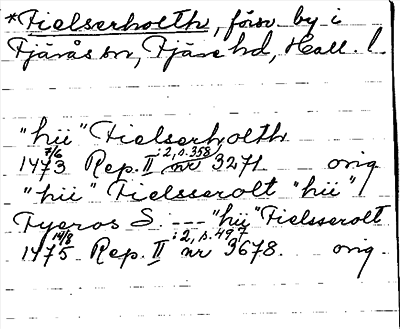 *Fielserholth, försv. by i
Fjärås sn, Fjäre hd, Hall. l.
"hii" Fielserholth
1473 7/6 Rep. II :2, s.358, nr 3271 orig
"hii" Fielsserolt "hii"
Fyeros S. --- "hii" Fielsserolt
1475 14/8 Rep. II :2, s.497 nr 3678. orig.